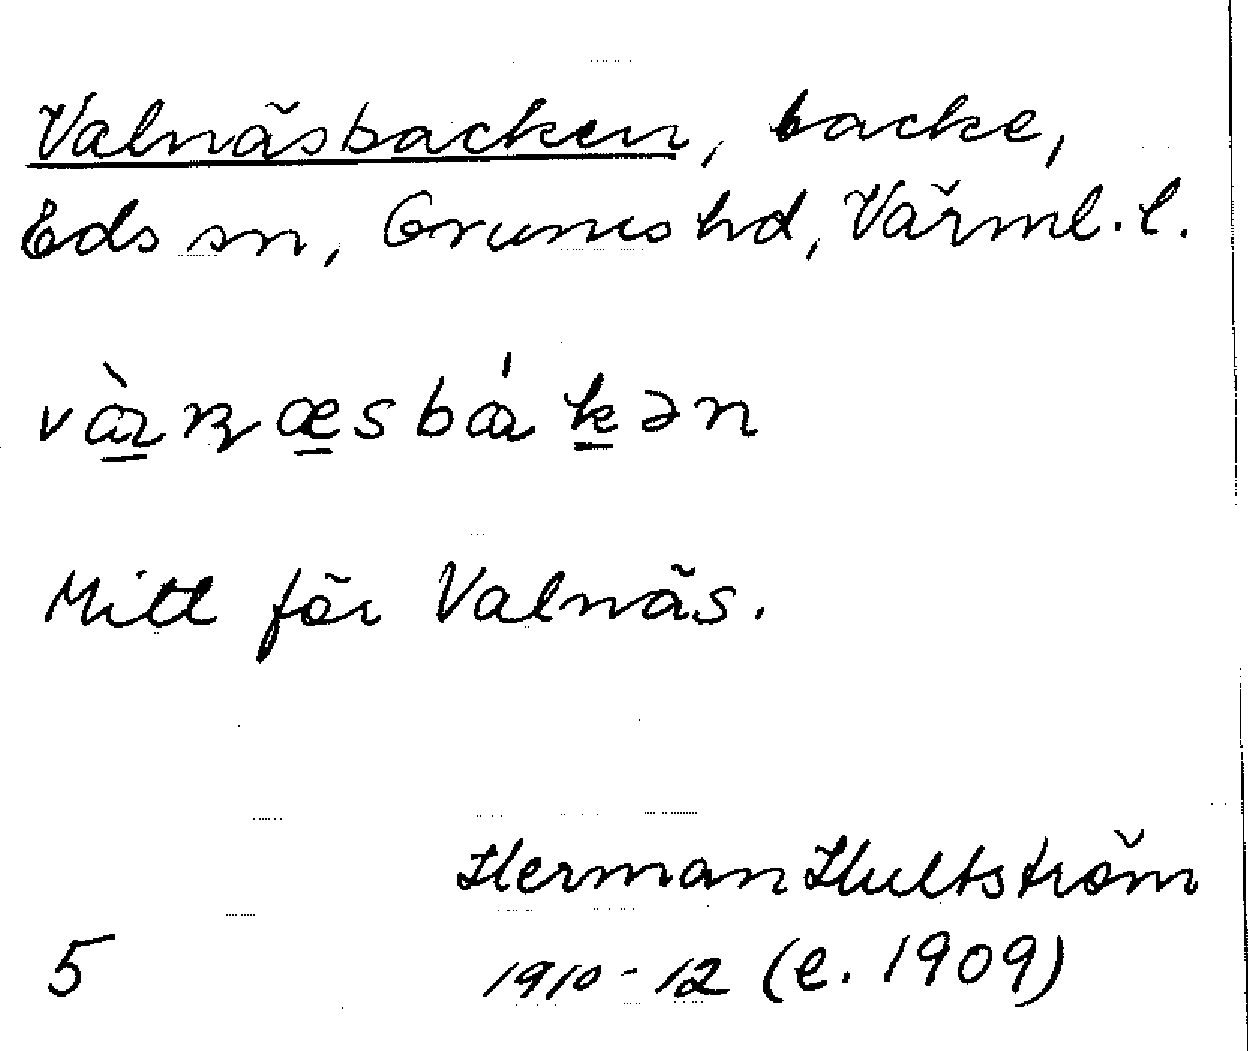 Valnäsbacken, backe,
Eds sn, Grums hd, Värml. l.
Mitt för Valnäs.
Herman Hultström
5 1910-12 (e. 1909)